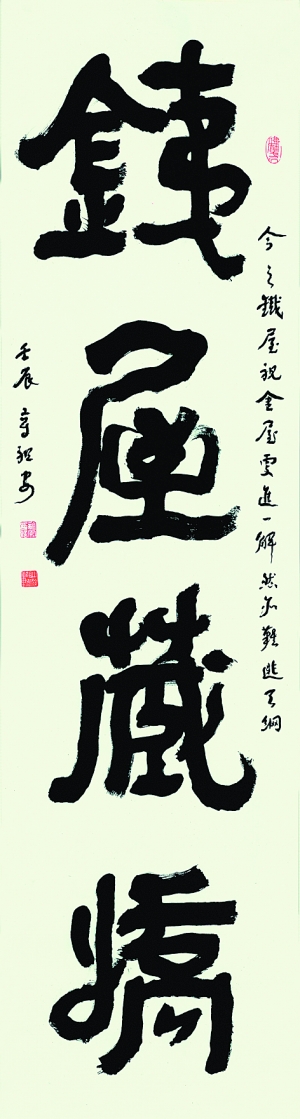 銕屋藏嬌
今之鐵屋視金屋更進一解然亦難逃天網
壬辰